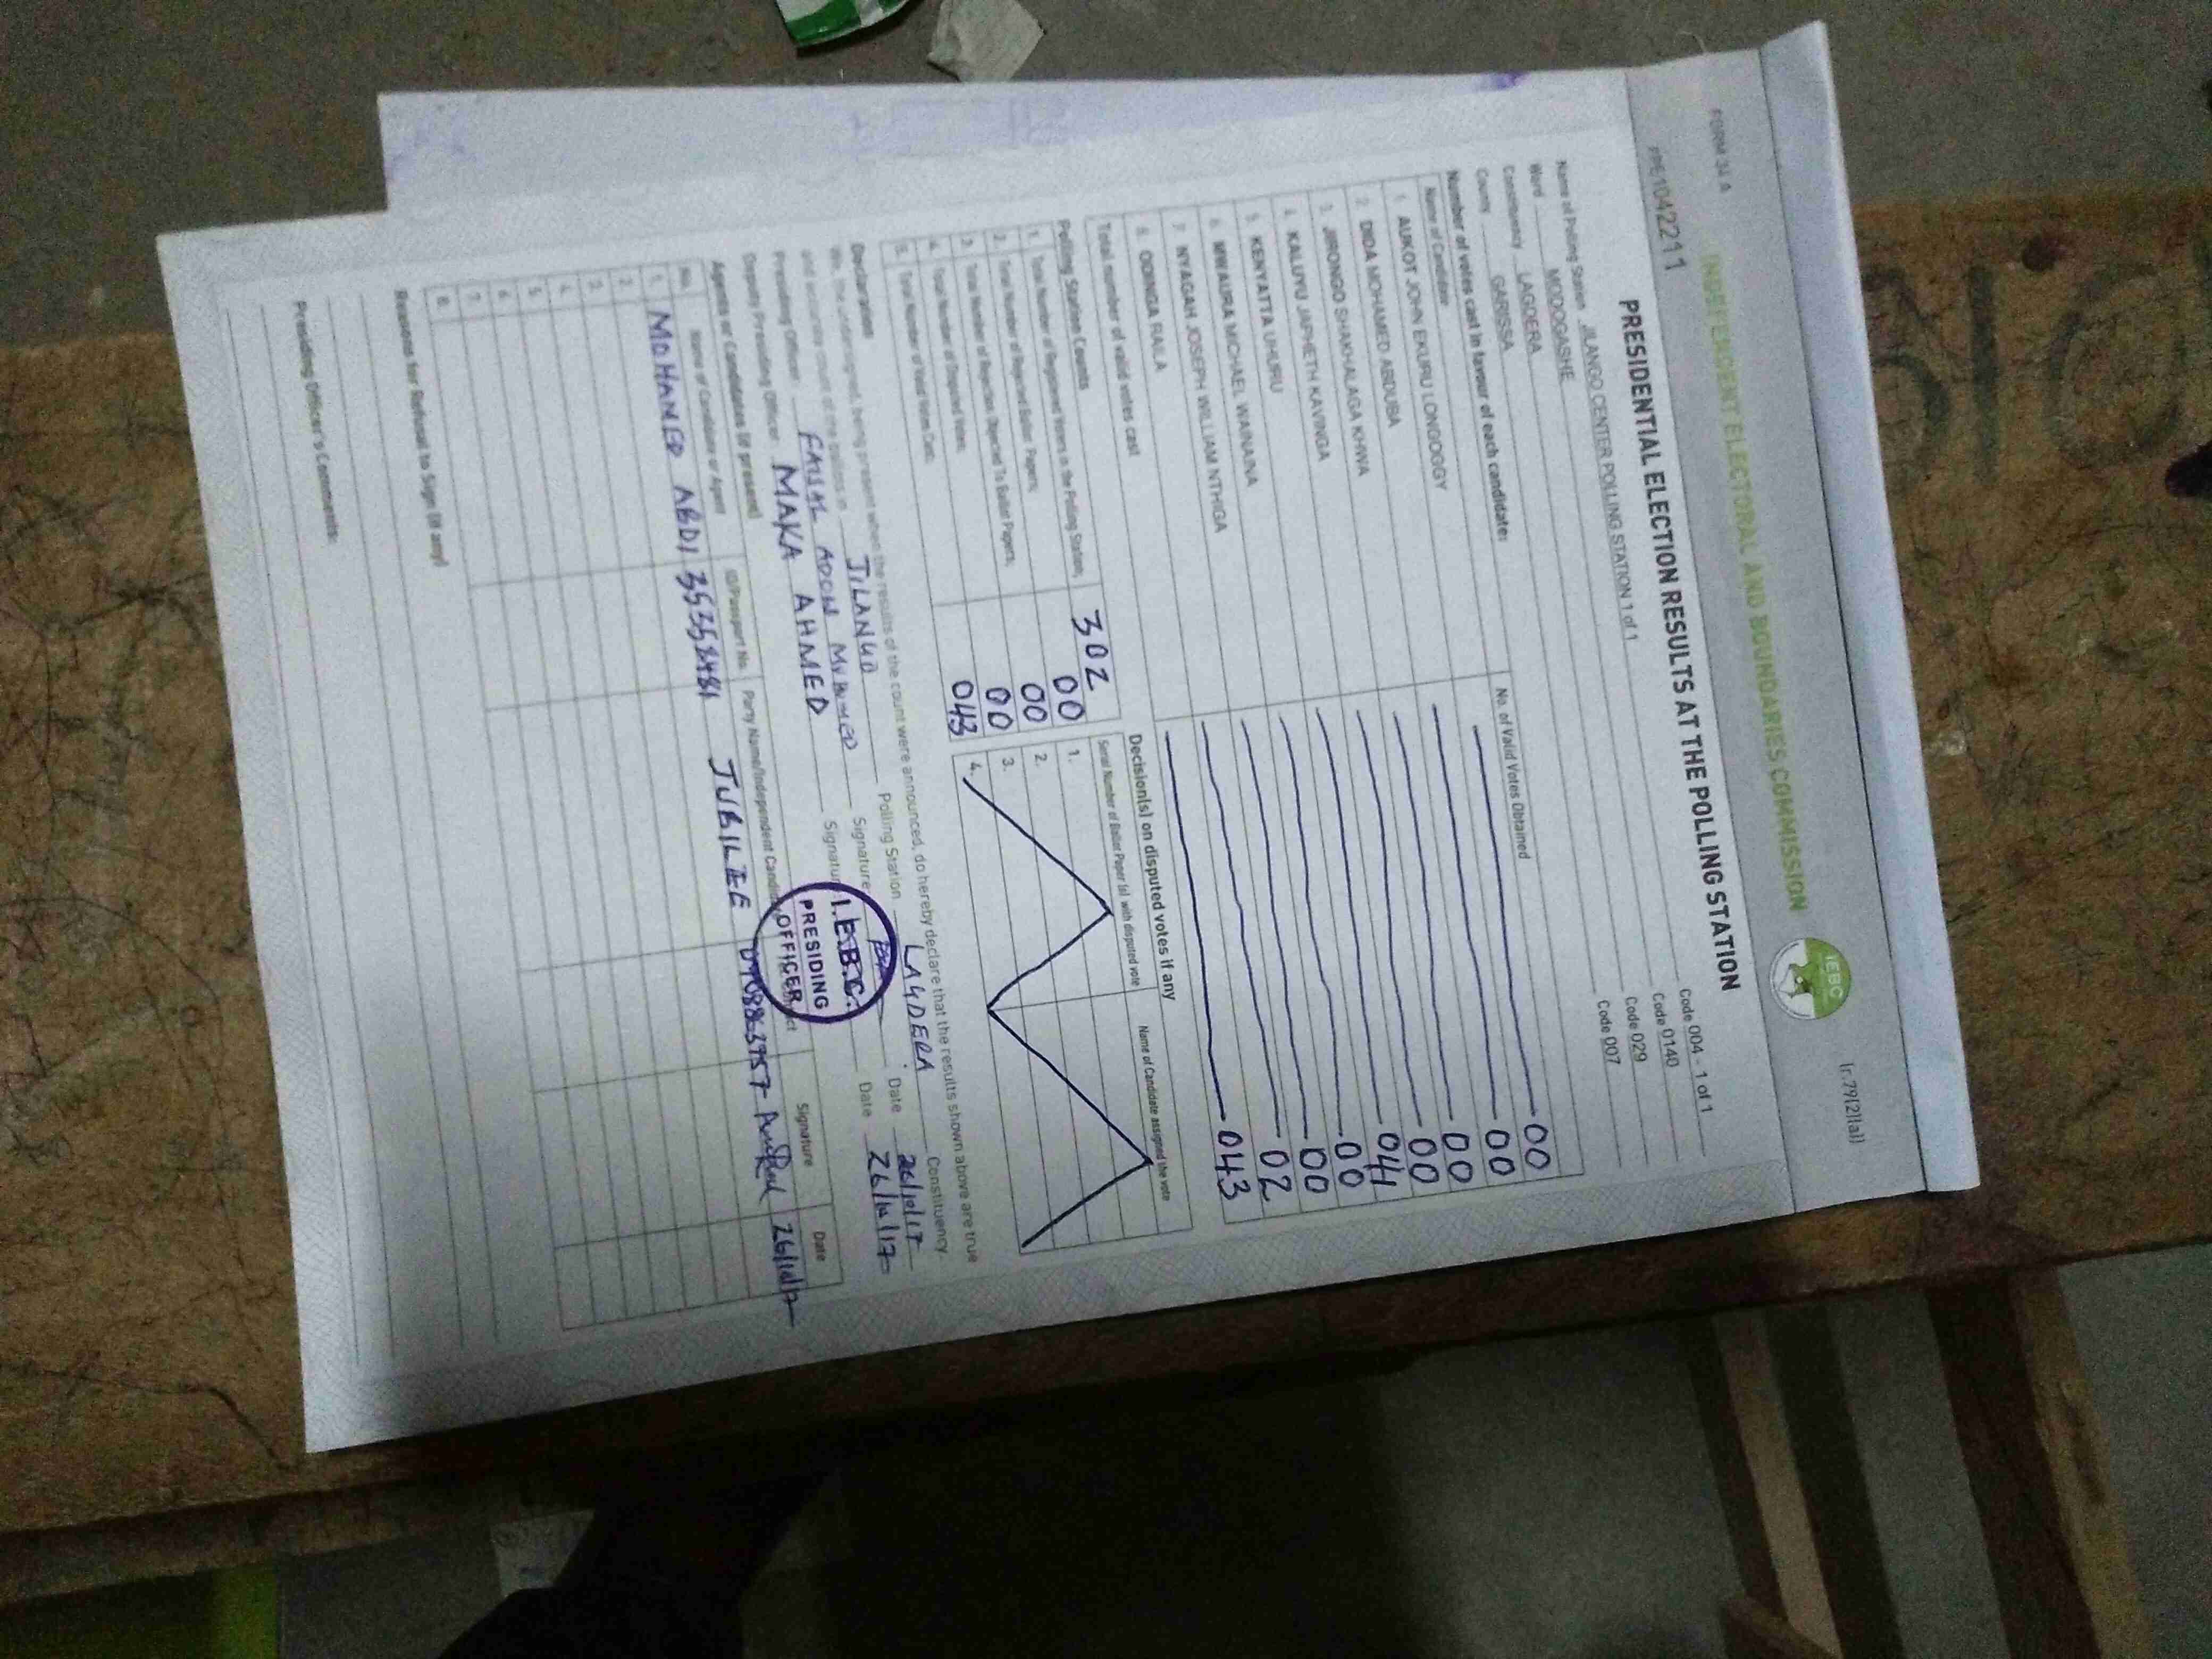 FORM 34 A
(r.79(2)(a))
INDEPENDENT ELECTORAL AND BOUNDARIES COMMISSION
IEBC
PPE1042211
PRESIDENTIAL ELECTION RESULTS AT THE POLLING STATION
Name of Polling Station JILANGO CENTER POLLING STATION 1 of 1 Code 004 - 1 of 1
Ward MODOGASHE Code 0140
Constituency LAGDERA Code 029
County GARISSA Code 007
Number of votes cast in favour of each candidate:
Name of Candidate No. of Valid Votes Obtained
1. AUKOT JOHN EKURU LONGOGGY 00
2. DIDA MOHAMED ABDUBA 00
3. JIRONGO SHAKHALAGA KHWA 00
4. KALUYU JAPHETH KAVINGA 00
5. KENYATTA UHURU 041
6. MWAURA MICHAEL WAINAINA 00
7. NYAGAH JOSEPH WILLIAM NTHIGA 00
8. ODINGA RAILA 02
Total number of valid votes cast 043
Polling Station Counts
1. Total Number of Registered Voters in the Polling Station; 302
2. Total Number of Rejected Ballot Papers; 00
3. Total Number of Rejection Objected To Ballot Papers; 00
4. Total Number of Disputed Votes; 00
5. Total Number of Valid Votes Cast; 043
Decision(s) on disputed votes if any
Serial Number of Ballot Paper (s) with disputed vote Name of Candidate assigned the vote
1.
2.
3.
4.
Declaration
We, the undersigned, being present when the results of the count were announced, do hereby declare that the results shown above are true
and accurate count of the ballots in JILANGO Polling Station LAGDERA Constituency.
Presiding Officer FAISAL ADOW Signature Date 26/10/17
Deputy Presiding Officer MAKA AHMED Signature Date 26/10/17
I.E.B.C.
PRESIDING
OFFICER
Agents or Candidates (if present)
No. Name of Candidate or Agent ID/Passport No. Party Name/Independent Signature Date
1. MOHAMED ABDI JUBILEE 26/10/17
2.
3.
4.
5.
6.
7.
8.
Reasons for Refusal to Sign (if any)
Presiding Officer's Comments: